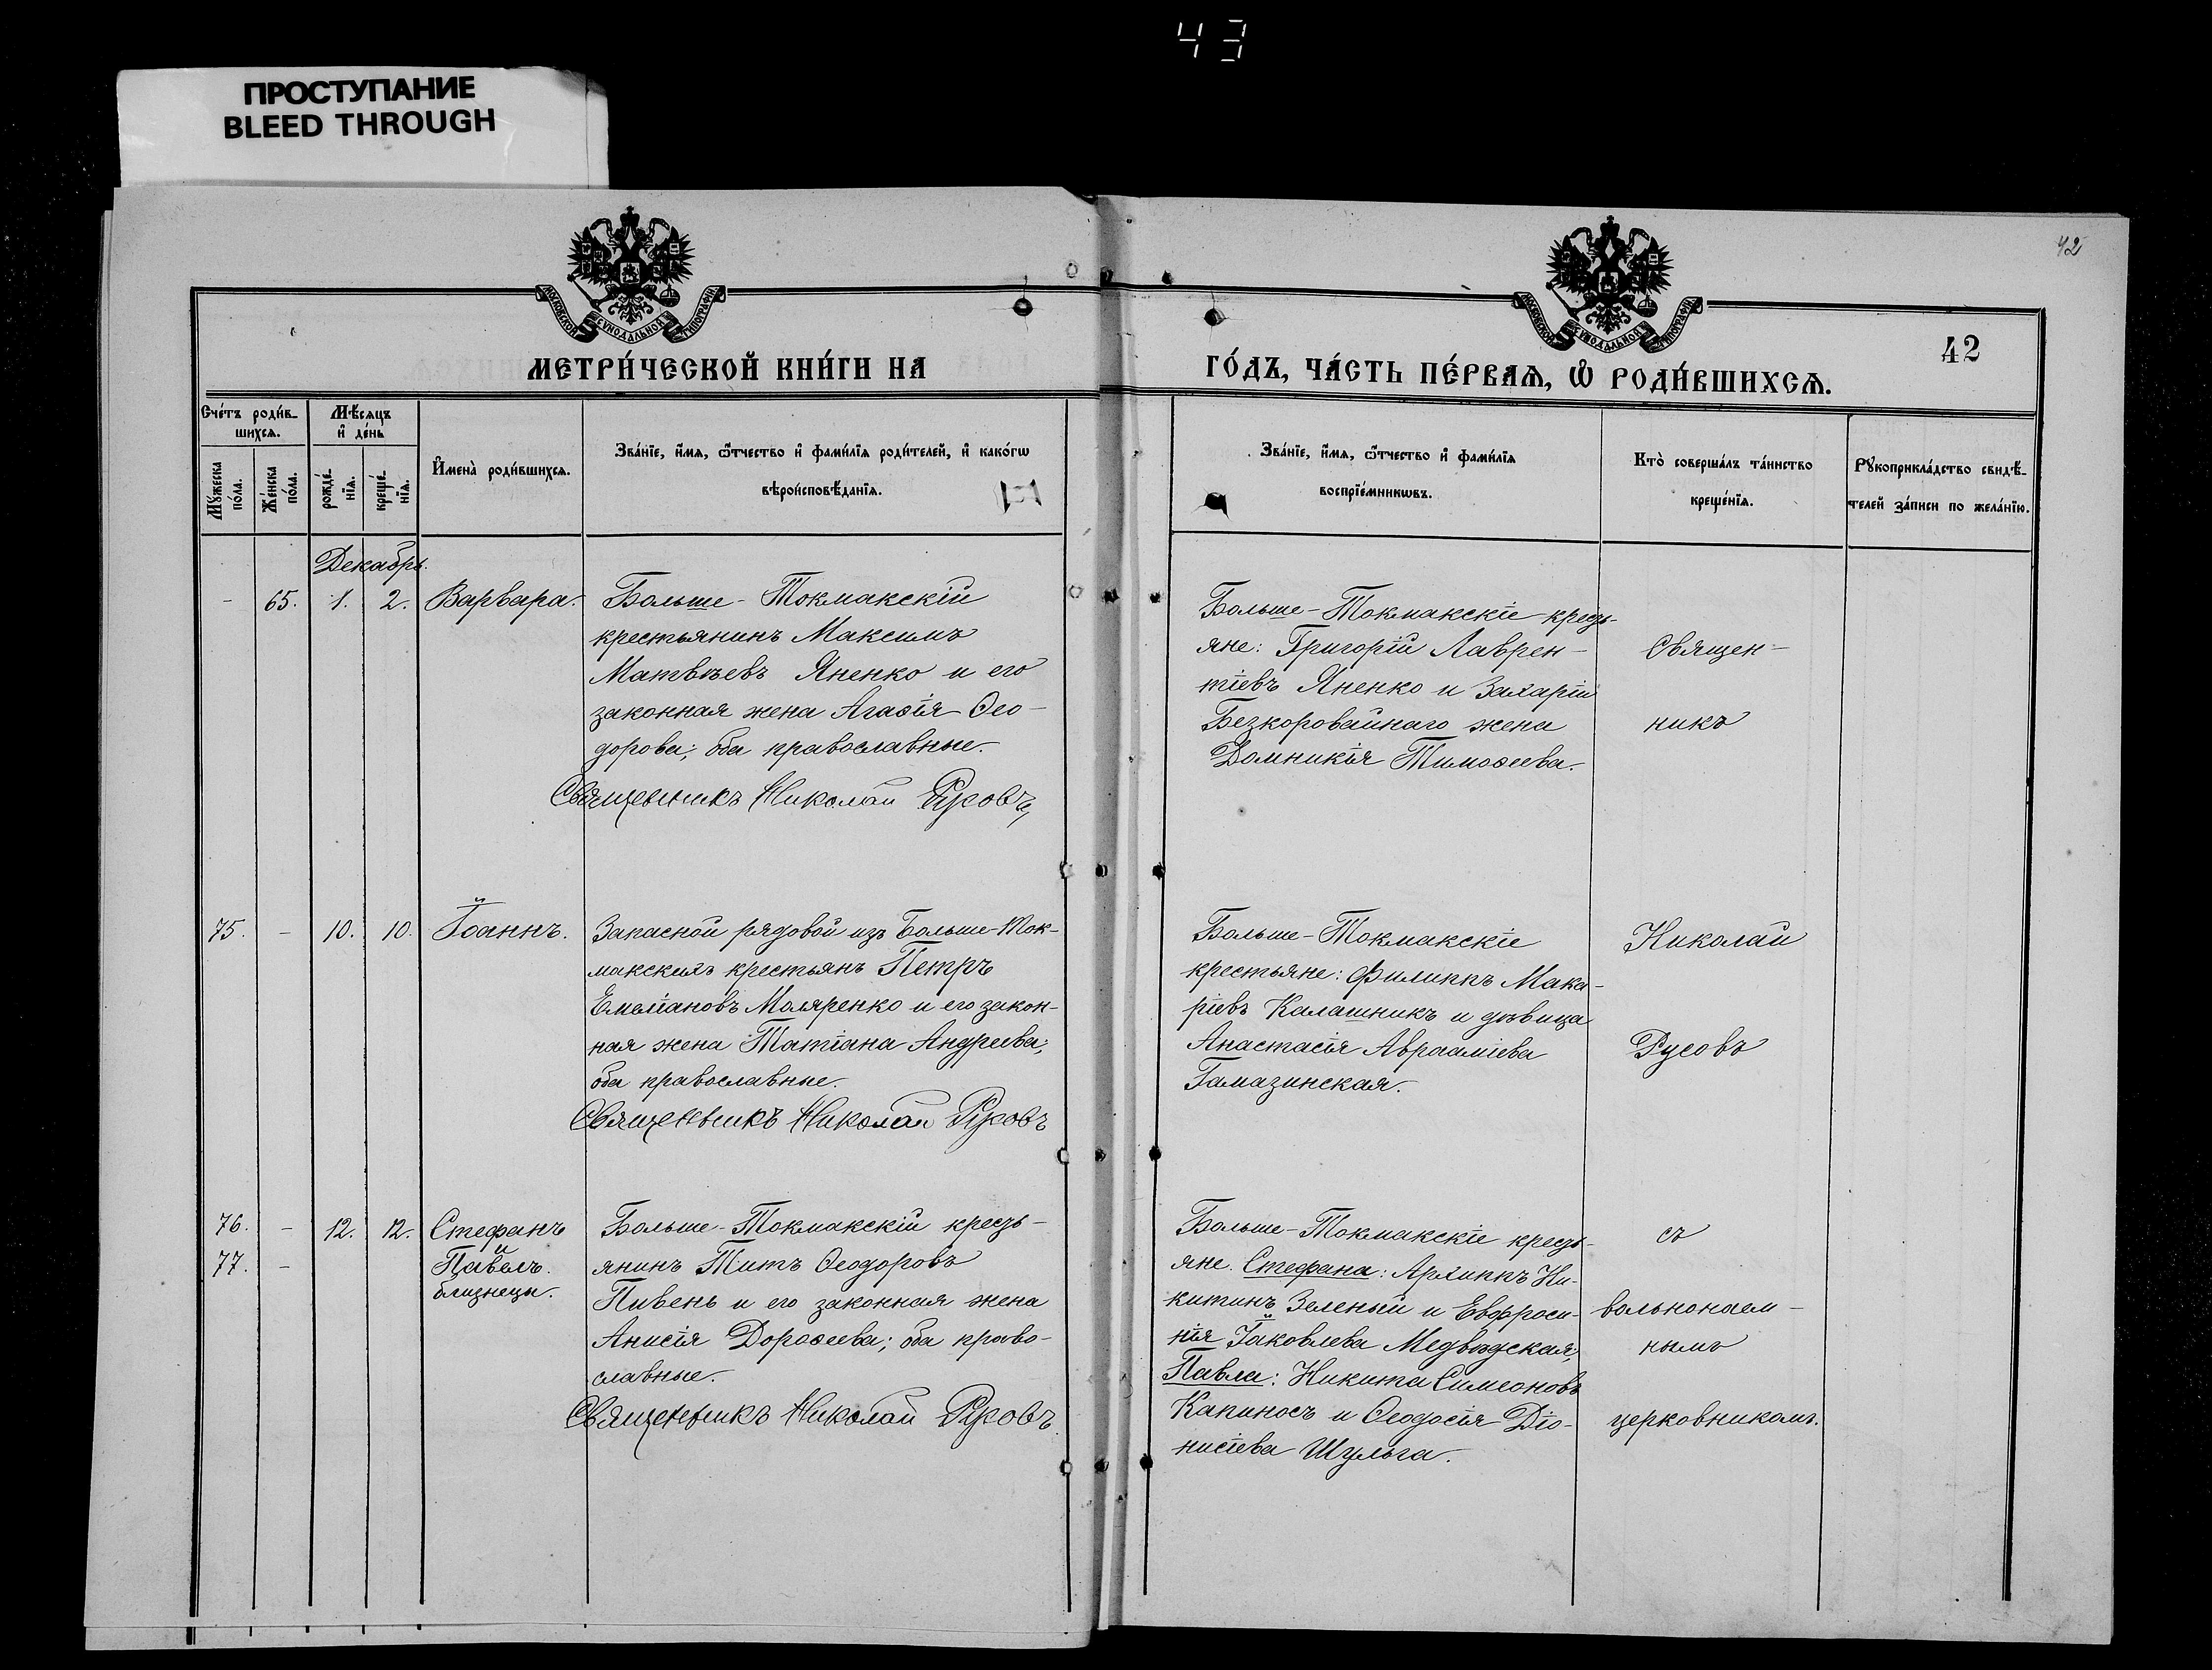 43
ПРОСТУПАНИЕ
BLEED THROUGH
42
МОСКОВСКОЙ СѴНОДАЛЬНОЙ ТИПОГРАФІИ
МОСКОВСКОЙ СѴНОДАЛЬНОЙ ТИПОГРАФІИ
МЕТРИ́ЧЕСКОЙ КНИ́ГИ НА
ГО́ДЪ, ЧА́СТЬ ПЕ́РВАѦ, Ѡ҆ РОДИ́ВШИХСѦ.
42
Сче́тъ роди́в-
шихсѧ.
Мѣ́сѧцъ
и҆ де́нь
Мꙋ́жеска
по́ла.
Же́нска
по́ла.
рожде́-
нїѧ.
креще́-
нїѧ.
И҆мена̀ роди́вшихсѧ.
Зва́нїе, и҆́мѧ, ѻ҆́тчество и҆ фами́лїѧ роди́телей, и҆ како́гѡ
вѣроисповѣ́данїѧ.
Зва́нїе, и҆́мѧ, ѻ҆́тчество и҆ фами́лїѧ
воспрїе́мникѡвъ.
Кто̀ соверша́лъ та́инство
креще́нїѧ.
Рꙋкоприкла́дство свидѣ́-
телей за́писи по жела́нїю.
Декабрь.
- 65. 1. 2. Варвара.
Больше-Токмакскій
крестьянинъ Максимъ
Матвѣевъ Яненко и его
законная жена Агаѳія Ѳео-
дорова; оба православные.
Священникъ Николай Русовъ
Больше-Токмакскіе кресть-
яне: Григорій Лаврен-
тіевъ Яненко и Захарія
Безкоровайнаго жена
Домникія Тимоѳеева.
Священ-
никъ
75. - 10. 10. Іоаннъ.
Запасной рядовой изъ Больше-Ток-
макскихъ крестьянъ Петръ
Емеліановъ Моляренко и его закон-
ная жена Татіана Андреева;
оба православные.
Священникъ Николай Русовъ
Больше-Токмакскіе
крестьяне: Филиппъ Мака-
ріевъ Калашникъ и дѣвица
Анастасія Авраамієва
Гамазинская.
Николай
Русовъ
76. - 12. 12. Стефанъ
77. - и
Павелъ.
близнецы.
Больше-Токмакскій кресть-
янинъ Титъ Ѳеодоровъ
Пивень и его законная жена
Анисія Дороѳеева; оба право-
славные.
Священникъ Николай Русовъ
Больше-Токмакскіе кресть-
яне. Стефана: Архиппъ Ни-
китинъ Зеленый и Евфроси-
нія Іаковлева Медвѣдская;
Павла: Никита Симеоновъ
Капиносъ и Ѳеодосія Діо-
нисіева Шульга.
съ
вольнонаем-
нымъ
церковникомъ.